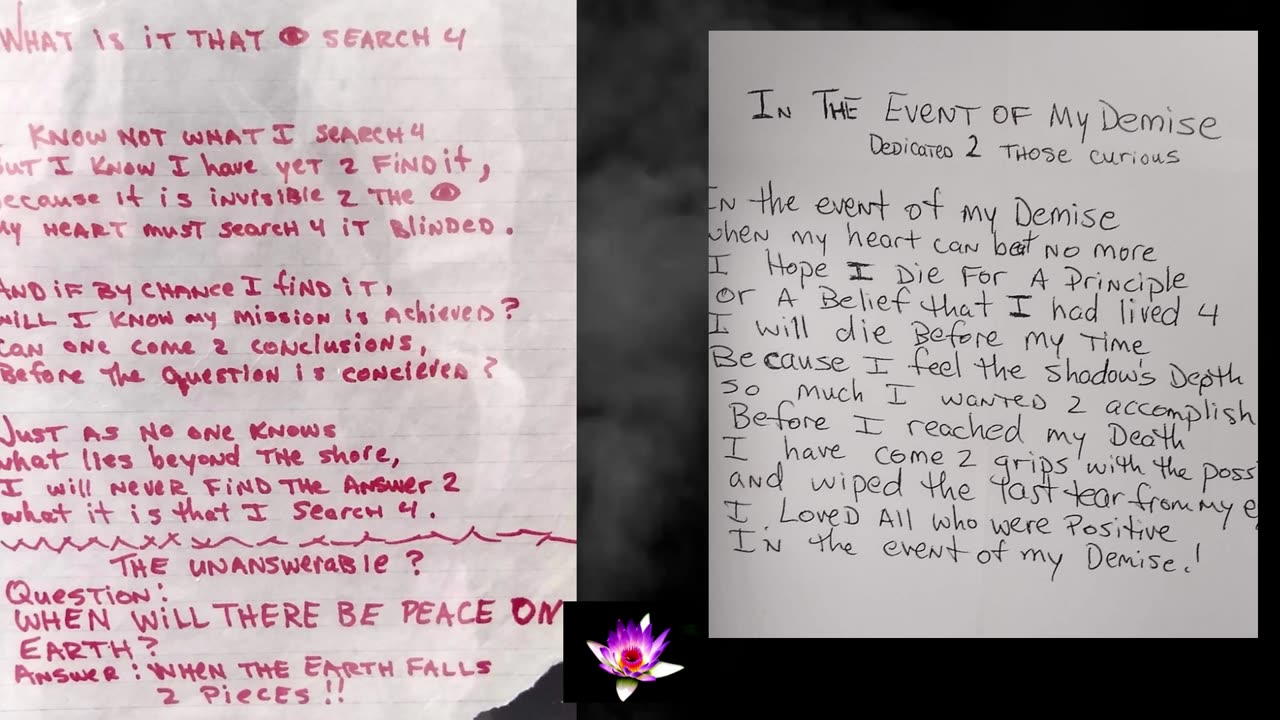 WHAT is iT THAT 👁 SEARCH 4
KNOW NOT WHAT I SEARCH 4
I KNOW I have yet 2 FiNDit,
it is invisible 2 THE 👁
HEART must search 4 iT BliNDED.
iF BY CHANCE I fiND iT,
I KNOW my Mission is Achieved?
one come 2 conclusions,
Before THE QUESTION is concieved?
Just AS NO ONE KNOWS
what lies beyond THE shore,
I will NEVER FIND THE ANSWER 2
what it is that I Search 4.
THE UNANSWERABLE?
QUESTION:
WHEN WILL THERE BE PEACE ON
EARTH?
ANSWER: WHEN THE EARTH FALLS
2 PIECES!!
IN THE EVENT OF My Demise
DEDICATED 2 THOSE curious
IN the event of my Demise
when my heart can beat NO more
I Hope I Die For A Principle
or A Belief that I had lived 4
I will die Before my Time
Because I feel the shadow's Depth
so much I wanted 2 accomplish
Before I reached my Death
I have come 2 grips with the
and wiped the last tear from my
I LoveD All who were Positive
IN the event of my Demise!